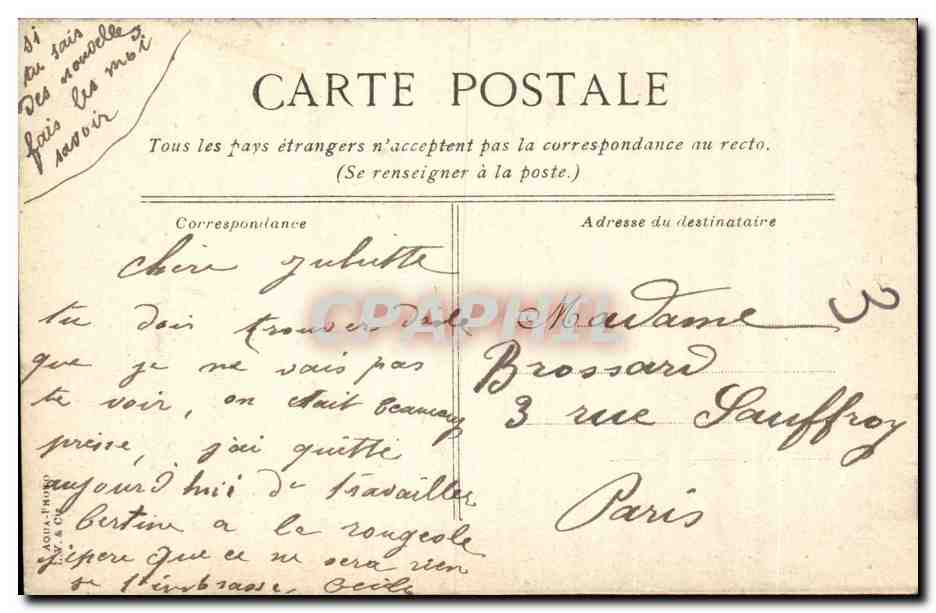 si
tu sais
des nouvelles
fais les moi
savoir
CARTE POSTALE
Tous les pays étrangers n'acceptent pas la correspondance au recto.
(Se renseigner à la poste.)
Correspondance
chere juliette
tu dois trouver drole
que je ne vais pas
te voir, on était beaucoup
presse, j'ai quitté
aujourd'hui de travailler
bertine a la rougeole
j'espere que ce ne sera rien
je t'embrasse, Cécile
Adresse du destinataire
Madame
Brossard
3 rue Sauffroy
Paris
3
AQUA-PHOTO
L. V. & Cie
CPAPHIL